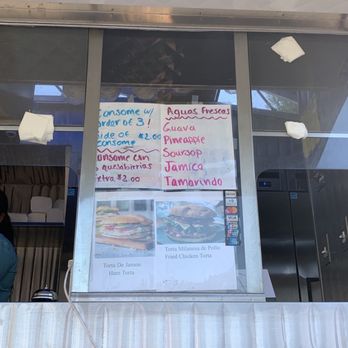 Consome w/
order of 3 /
side of $2.00
consome
consome con
quesabirrias
extra $2.00
Aguas Frescas
Guava
Pineapple
Soursop
Jamica
Tamarindo
Torta De Jamon
Ham Torta
Torta Milanesa de Pollo
Fried Chicken Torta